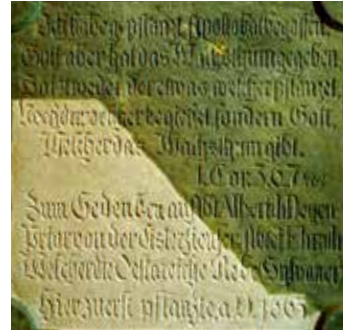 Ich habe gepflanzt Apollo hat begossen,
Gott aber hat das Wachsthum gegeben
So ist weder der etwas welcher pflanzet,
Noch der welcher begießet sondern Gott,
Welcher das Wachsthum gibt.
1. Cor. 3, 6, 7
Zum Gedenken an Abt Alberich Degen
Prior von der Cisterzienser Abtei Ebrach
Welcher die Oesterreiche Rebe Sylvaner
Hier zuerst pflanzte a. D. 1665